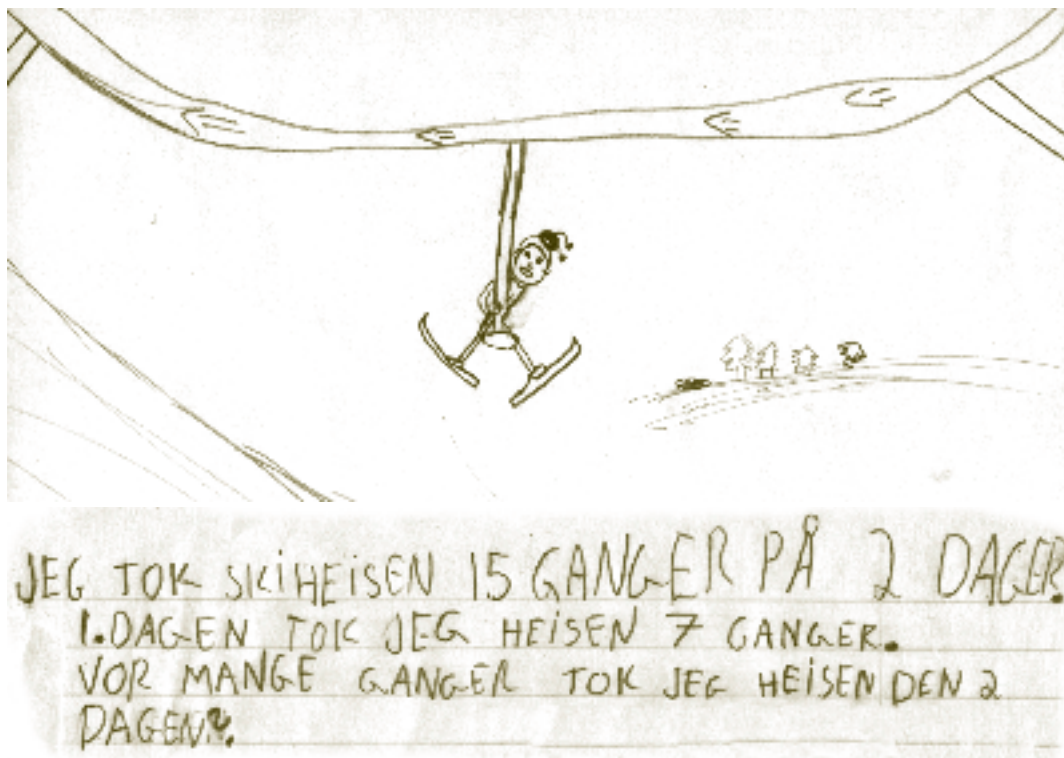 JEG TOK SKIHEISEN 15 GANGER PÅ 2 DAGER.
1. DAGEN TOK JEG HEISEN 7 GANGER.
VOR MANGE GANGER TOK JEG HEISEN DEN 2
DAGEN?